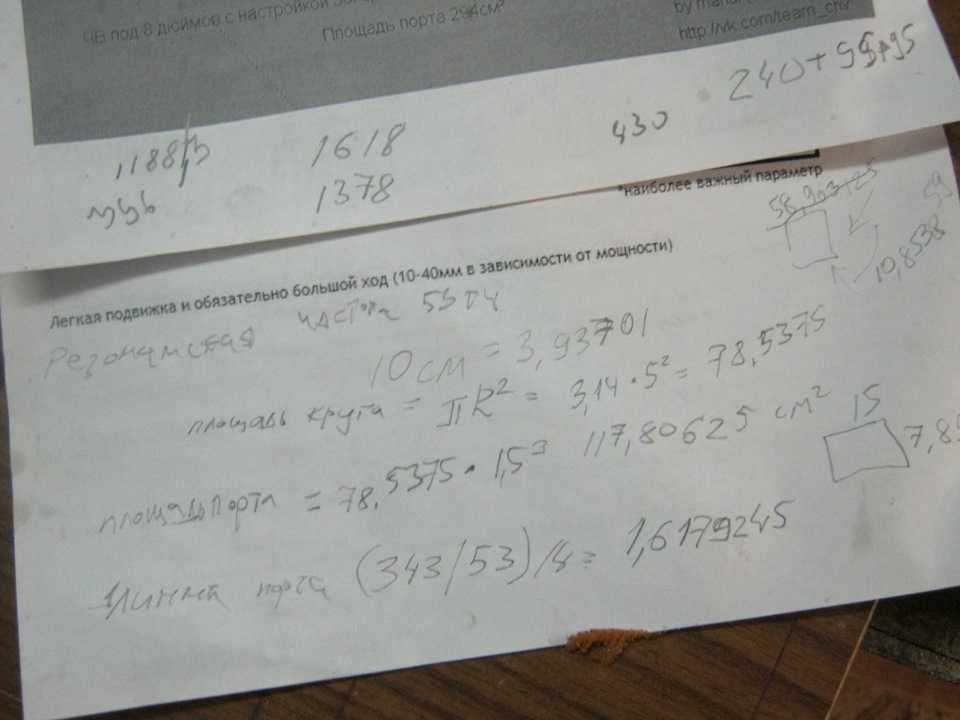 ЧВ под 8 дюймов с настройкой
Площадь порта 294см²
by
http://vk.com/team_chv
1618
430
240+
1378
*наиболее важный параметр
58,903125
59
10,8538
Легкая подвижка и обязательно большой ход (10-40мм в зависимости от мощности)
Резонансная частота 53 гц
10 см = 3,93701
площадь круга = πR² = 3,14 · 5² = 78,5375
площадь порта = 78,5375 · 1,5 = 117,80625 см²
15
7,85
длинна порта (343/53)/4 = 1,6179245